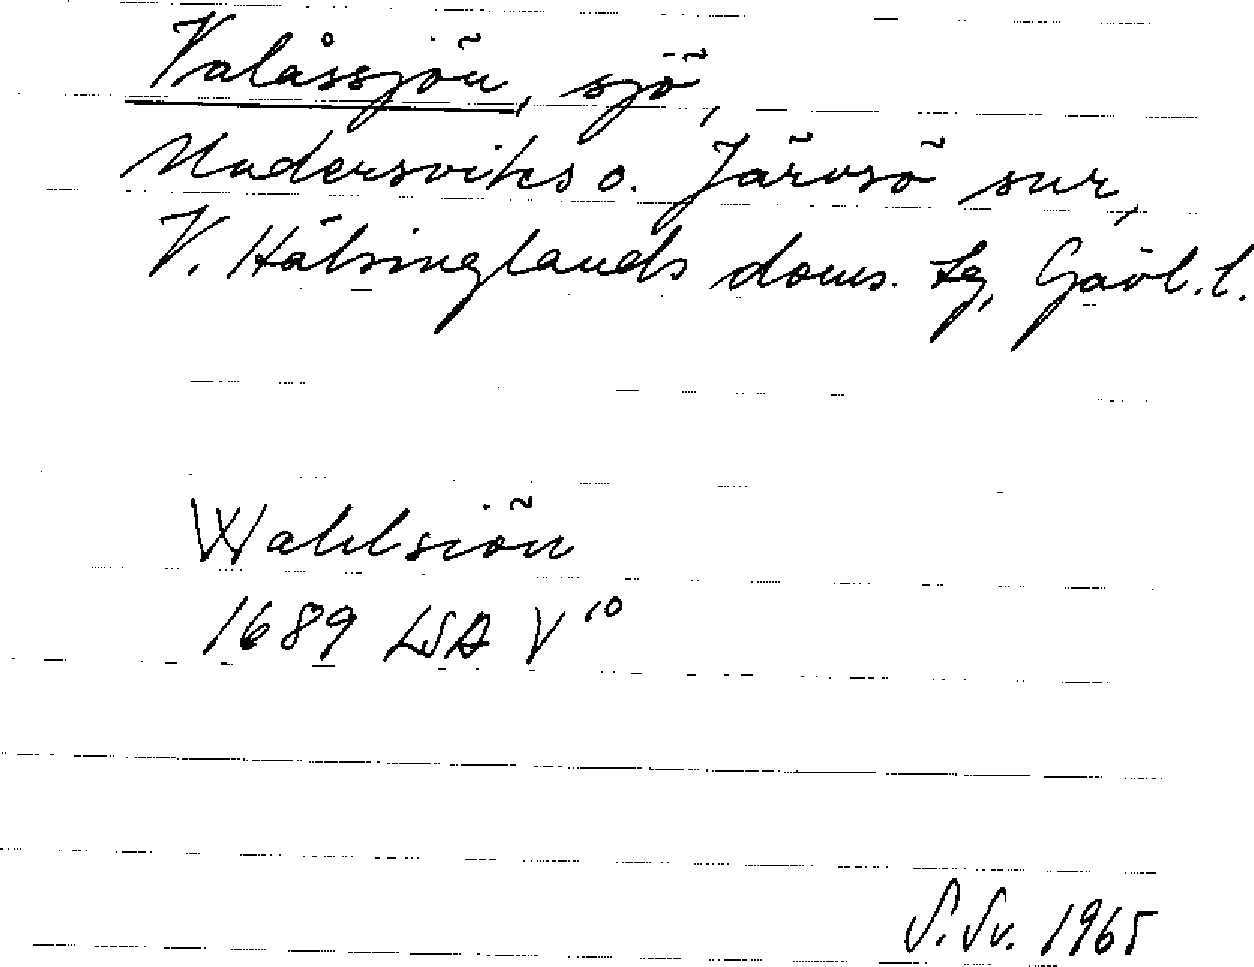 Valåssjön, sjö,
Undersviks o. Järvsö snr,
V. Hälsinglands doms. tg, Gävl. l.
Wahlsiön
1689 LSA V 10
S. Sv. 1965